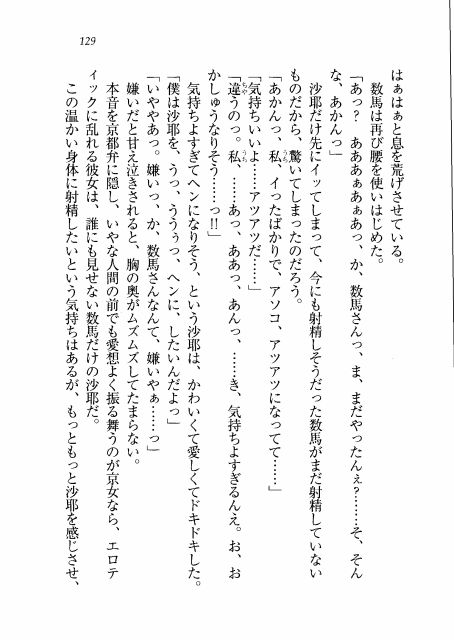 129
はぁはぁと息を荒げさせている。
数馬は再び腰を使いはじめた。
「あっ？　あああぁあぁあっ、か、数馬さんっ、ま、まだやったんぇ？……そ、そん
な、あかんっ」
沙耶だけ先にイッてしまって、今にも射精しそうだった数馬がまだ射精していない
ものだから、驚いてしまったのだろう。
「あかんっ、私、イったばかりで、アソコ、アツアツになってて……」
「気持ちいいよ……アツアツだ……」
「違うのっ。私、……あっ、ああっ、あんっ、……き、気持ちよすぎるんえ。お、お
かしゅうなりそう……っ!!」
気持ちよすぎてヘンになりそう、という沙耶は、かわいくて愛しくてドキドキした。
「僕は沙耶を、うっ、ううぅっ、ヘンに、したいんだよっ」
「いややあっ。嫌いっ、か、数馬さんなんて、嫌いやぁ……っ」
嫌いだと甘え泣きされると、胸の奥がムズムズしてたまらない。
本音を京都弁に隠し、いやな人間の前でも愛想よく振る舞うのが京女なら、エロテ
ィックに乱れる彼女は、誰にも見せない数馬だけの沙耶だ。
この温かい身体に射精したいという気持ちはあるが、もっともっと沙耶を感じさせ、